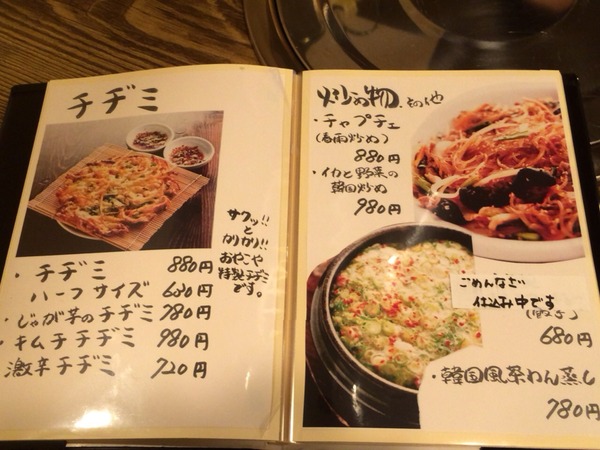 チヂミ
サクッ!!
と
カリカリ!!
おやこや
特製チヂミ
です。
・チヂミ 880円
ハーフサイズ 680円
・じゃが芋のチヂミ 780円
・キムチチヂミ 980円
激辛チヂミ 720円
炒め物、その他
・チャプチェ
(春雨炒め)
880円
・イカと野菜の
韓国炒め
980円
ごめんなさい
仕込み中です
680円
・韓国風茶わん蒸し
780円